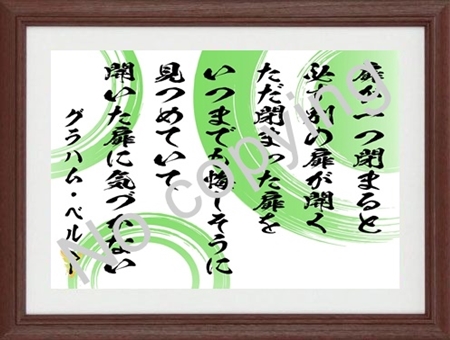 扉が一つ閉まると
必ず別の扉が開く
ただ閉まった扉を
いつまでも悔しそうに
見つめていて
開いた扉に気づかない
グラハム・ベル
No copying